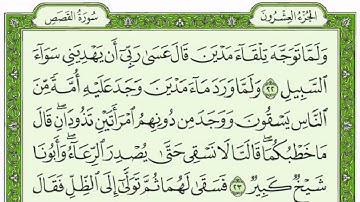 سُورَةُ القَصَصِ الجُزْءُ العِشْرُونَ
وَلَمَّا تَوَجَّهَ تِلْقَآءَ مَدْيَنَ قَالَ عَسَىٰ رَبِّيٓ أَن يَهْدِيَنِي سَوَآءَ
ٱلسَّبِيلِ ٢٢ وَلَمَّا وَرَدَ مَآءَ مَدْيَنَ وَجَدَ عَلَيْهِ أُمَّةً مِّنَ
ٱلنَّاسِ يَسْقُونَ وَوَجَدَ مِن دُونِهِمُ ٱمْرَأَتَيْنِ تَذُودَانِ ۖ قَالَ
مَا خَطْبُكُمَا ۖ قَالَتَا لَا نَسْقِي حَتَّىٰ يُصْدِرَ ٱلرِّعَآءُ ۖ وَأَبُونَا
شَيْخٌ كَبِيرٌ ٢٣ فَسَقَىٰ لَهُمَا ثُمَّ تَوَلَّىٰٓ إِلَى ٱلظِّلِّ فَقَالَ